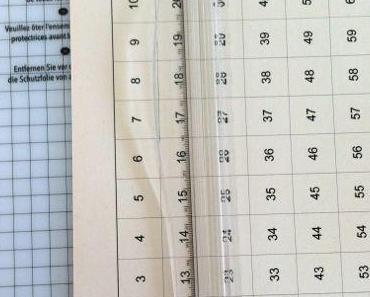 Veuillez ôter l'ensem
protectrices avant
Entfernen Sie vor
die Schutzfolie von
10 9 8 7 6 5 4 3
20 19 18 17 16 15 14 13
29 28 27 26 25 24 23
39 38 37 36 35 34 33
49 48 47 46 45 44 43
59 58 57 56 55 54 53